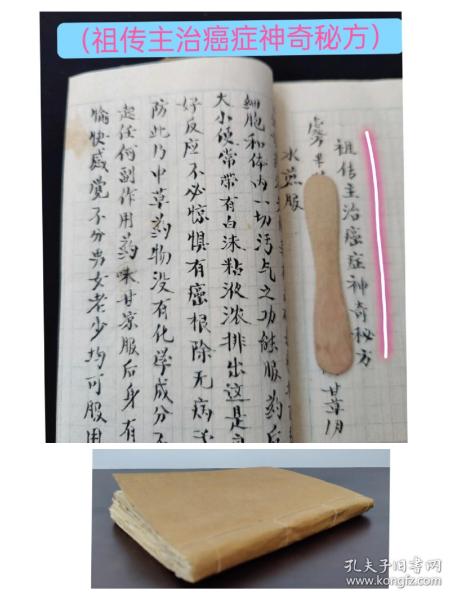 （祖传主治癌症神奇秘方）
祖传主治癌症神奇秘方
水煎服
细胞和体内一切污气之功能服药后
大小便常带有白沫粘液浓排出这是
好反应不必惊惧有癌根除无病
防此乃中草药物没有化学成分不
起任何副作用药味甘凉服后身有
愉快感觉不分男女老少均可服用
孔夫子旧书网
www.kongfz.com